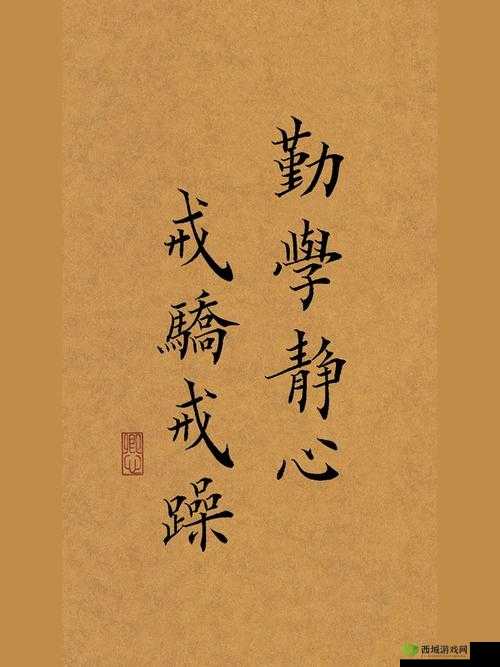 勤學静心
戒驕戒躁
西域游戏网